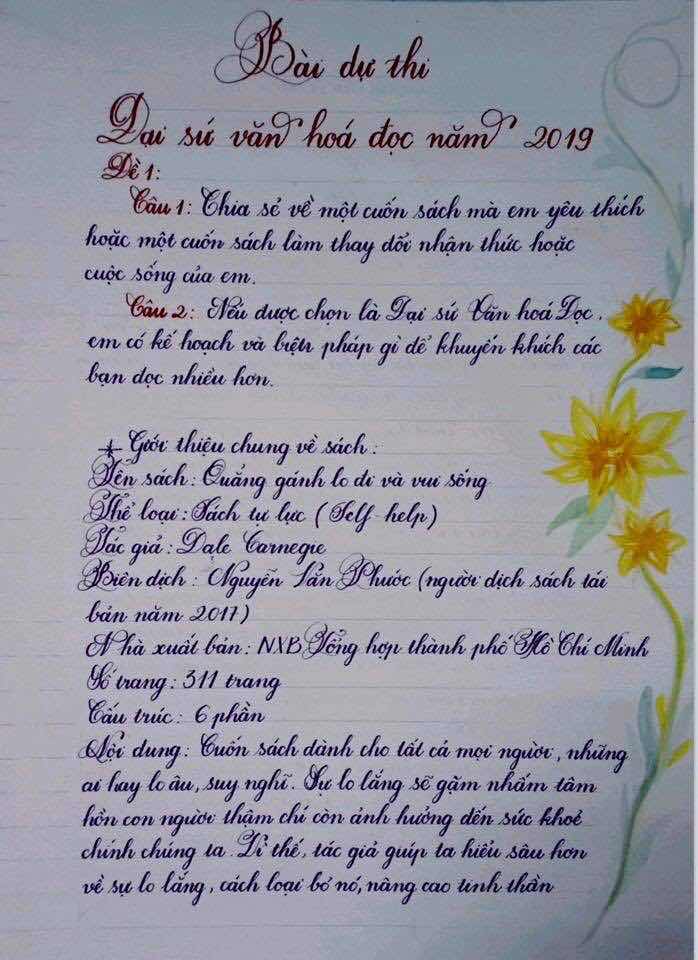 Bài dự thi
Đại sứ văn hoá đọc năm 2019
Đề 1:
Câu 1: Chia sẻ về một cuốn sách mà em yêu thích
hoặc một cuốn sách làm thay đổi nhận thức hoặc
cuộc sống của em.
Câu 2: Nếu được chọn là Đại sứ Văn hoá Đọc,
em có kế hoạch và biện pháp gì để khuyến khích các
bạn đọc nhiều hơn.
+ Giới thiệu chung về sách:
Tên sách: Quẳng gánh lo đi và vui sống
Thể loại: Sách tự lực (Self-help)
Tác giả: Dale Carnegie
Biên dịch: Nguyễn Văn Phước (người dịch sách tái
bản năm 2017)
Nhà xuất bản: NXB Tổng hợp thành phố Hồ Chí Minh
Số trang: 311 trang
Cấu trúc: 6 phần
Nội dung: Cuốn sách dành cho tất cả mọi người, những
ai hay lo âu, suy nghĩ. Sự lo lắng sẽ gặm nhấm tâm
hồn con người thậm chí còn ảnh hưởng đến sức khoẻ
chính chúng ta. Vì thế, tác giả giúp ta hiểu sâu hơn
về sự lo lắng, cách loại bỏ nó, nâng cao tinh thần